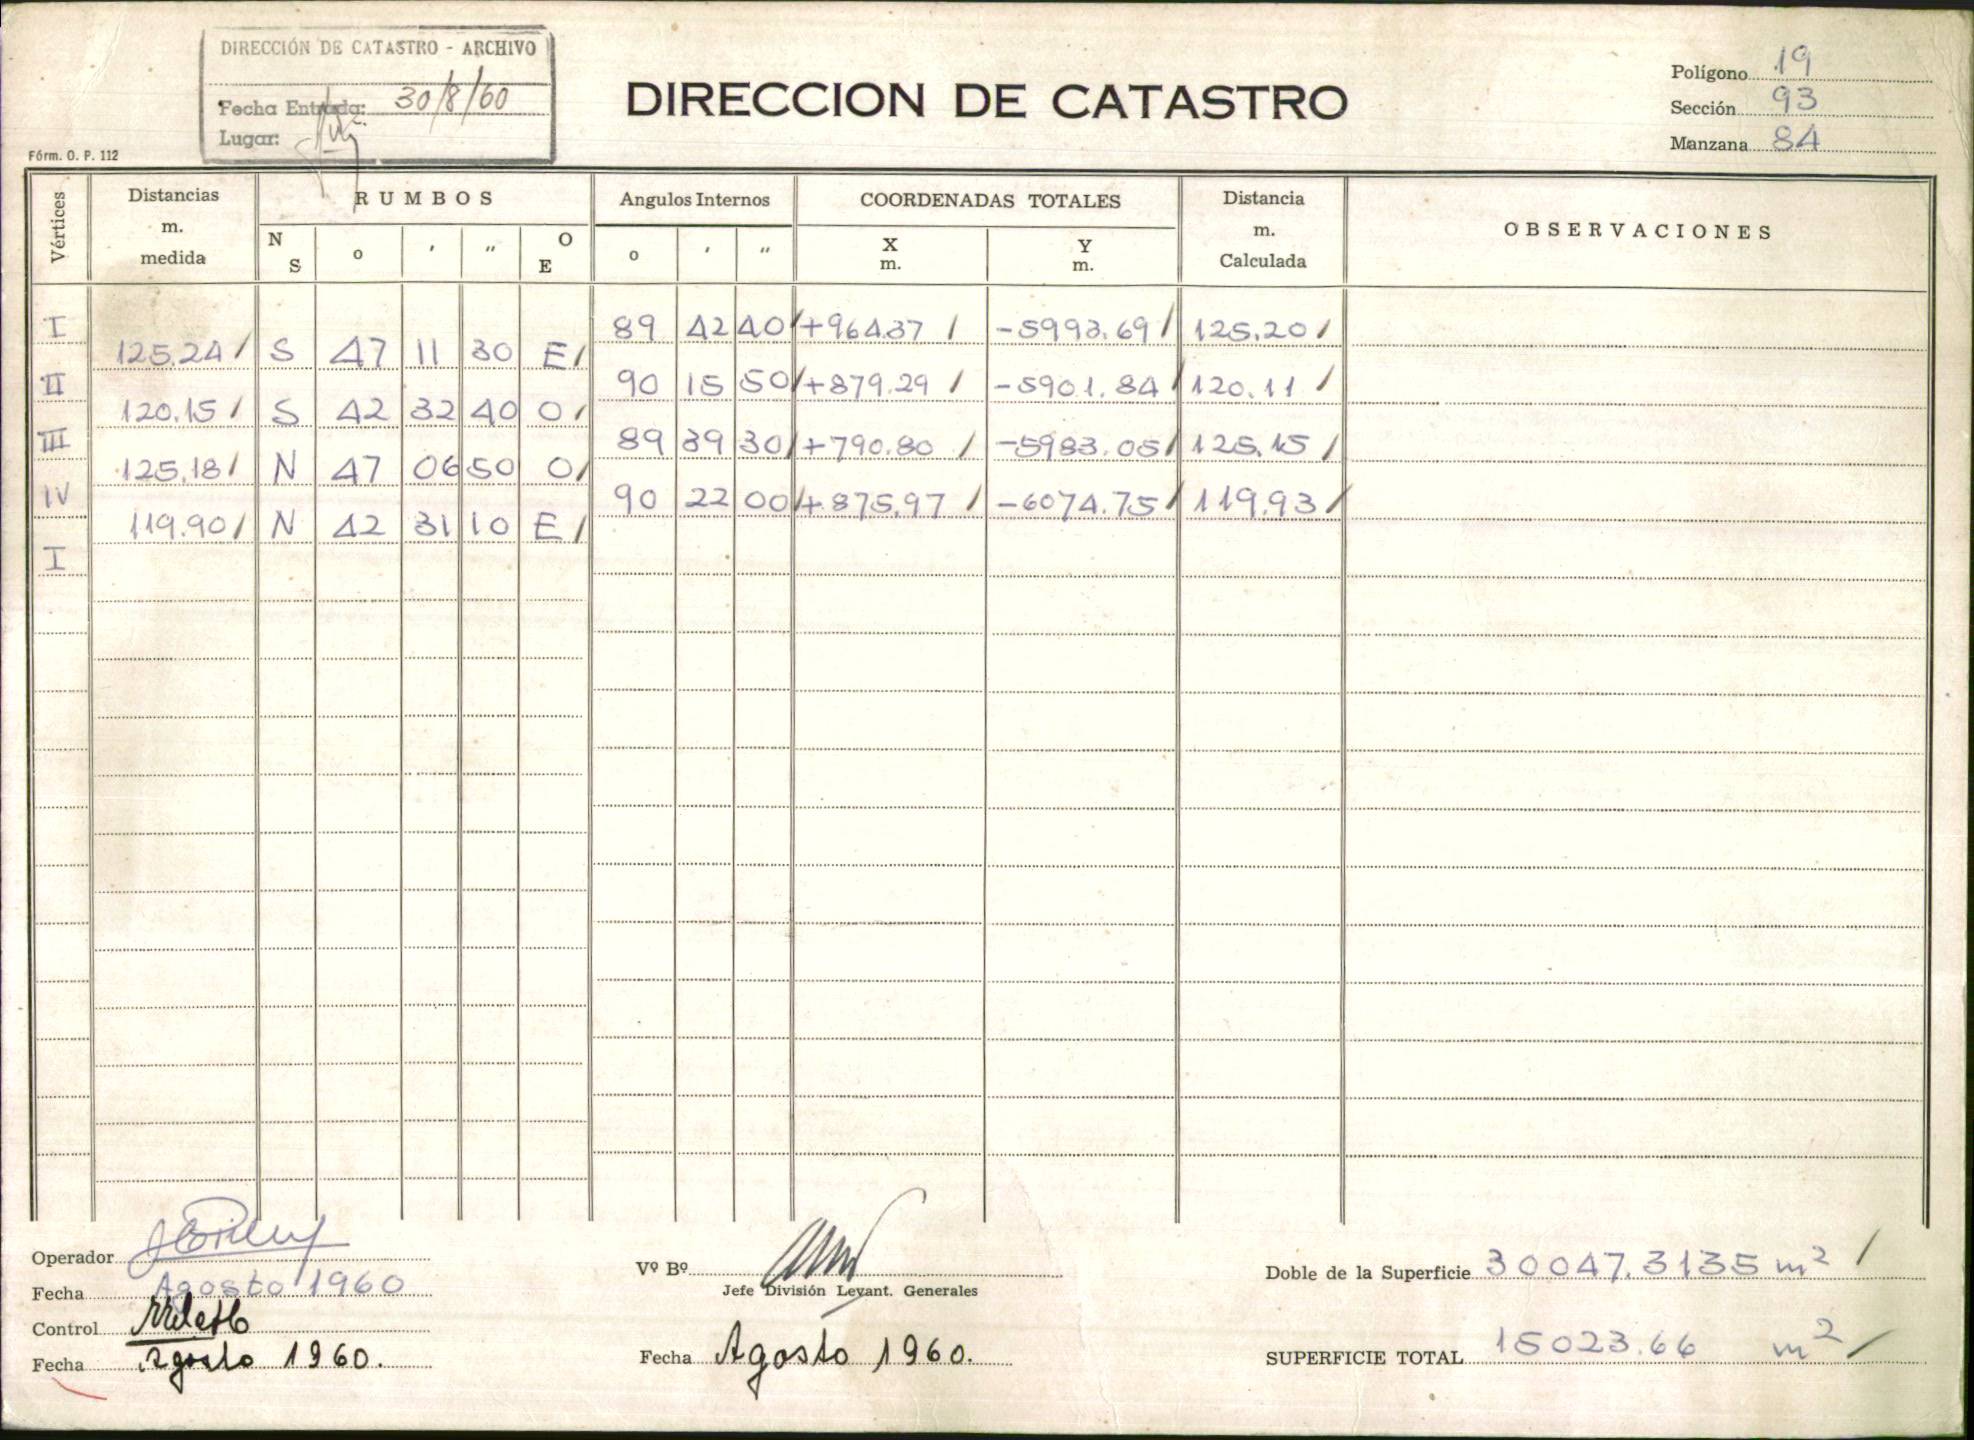 DIRECCIÓN DE CATASTRO - ARCHIVO
Fecha Entrada: 30/8/60
Lugar:
Fórm. O. P. 112
DIRECCION DE CATASTRO
Polígono 19
Sección 93
Manzana 84
Vértices Distancias m. medida RUMBOS Angulos Internos COORDENADAS TOTALES Distancia m. Calculada OBSERVACIONES
N S o ' " O E o ' " X m. Y m.
I 89 42 40 +964.37 -5993.69 125.20
125.24 S 47 11 30 E
II 90 15 50 +879.29 -5901.84 120.11
120.15 S 42 32 40 O
III 89 39 30 +790.80 -5983.05 125.15
125.18 N 47 06 50 O
IV 90 22 00 +875.97 -6074.75 119.93
119.90 N 42 31 10 E
I
Operador
Fecha Agosto 1960
Control
Fecha Agosto 1960.
Vº Bº
Jefe División Levant. Generales
Fecha Agosto 1960.
Doble de la Superficie 30047.3135 m²
SUPERFICIE TOTAL 15023.66 m²